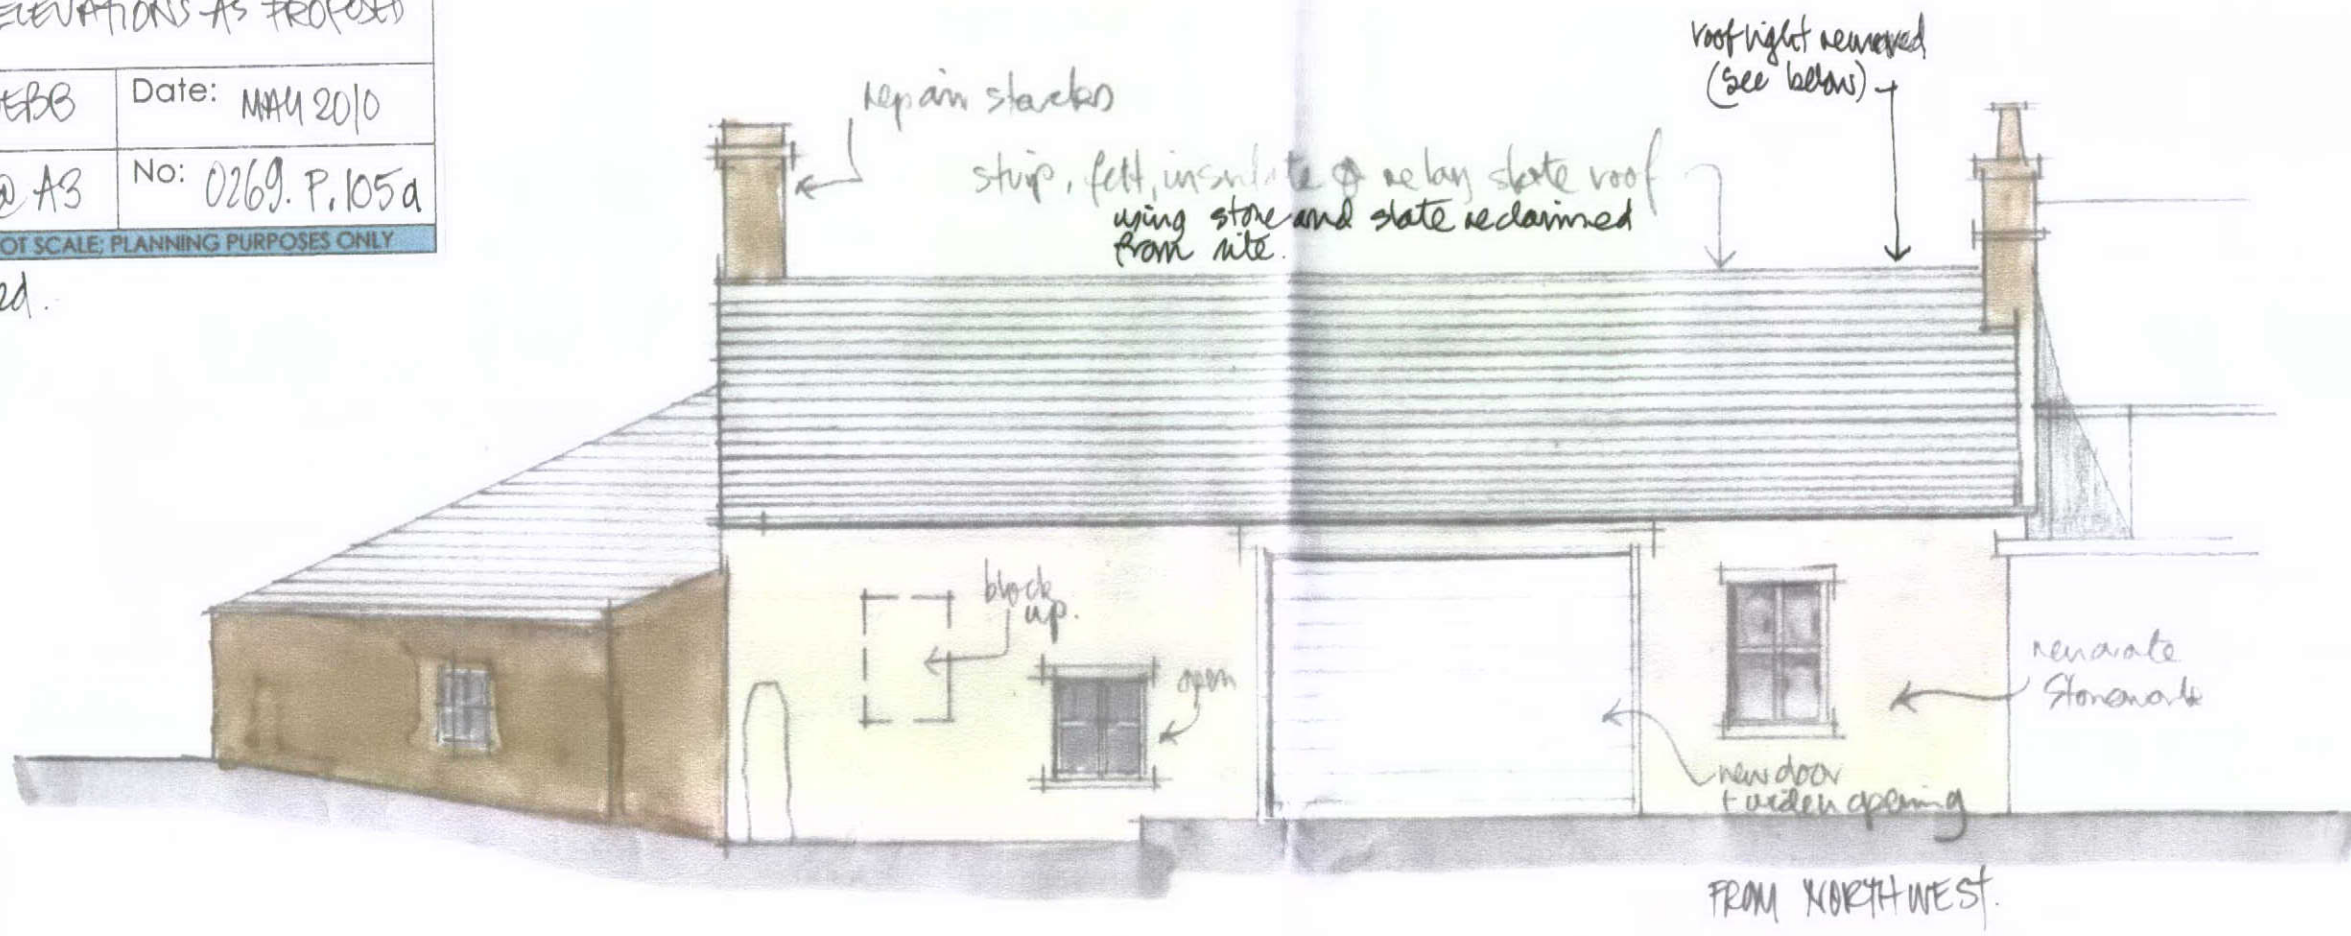 ELEVATIONS AS PROPOSED
EBB
Date: MAY 2010
@ A3
No: 0269. P. 105a
OT SCALE; PLANNING PURPOSES ONLY
ed.
repair stacks
strip, felt, insulate & relay slate roof
using stone and slate reclaimed
from site.
roof light removed
(see below)
block
up.
open
new door
+ widen opening
renovate
stonework
FROM NORTHWEST.